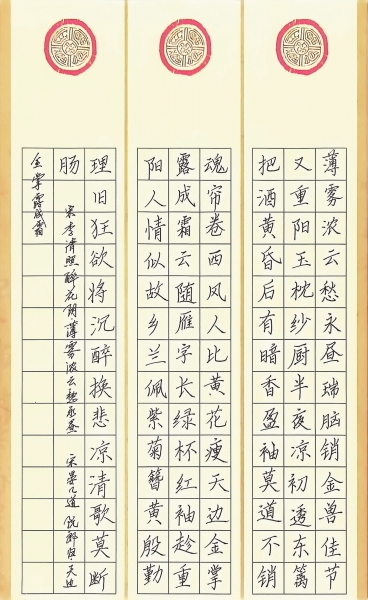 薄雾浓云愁永昼瑞脑销金兽佳节
又重阳玉枕纱厨半夜凉初透东篱
把酒黄昏后有暗香盈袖莫道不销
魂帘卷西风人比黄花瘦天边金掌
露成霜云随雁字长绿杯红袖趁重
阳人情似故乡兰佩紫菊簪黄殷勤
理旧狂欲将沉醉换悲凉清歌莫断
肠
宋李清照醉花阴·薄雾浓云愁永昼 宋晏几道阮郎归·天边
金掌露成霜